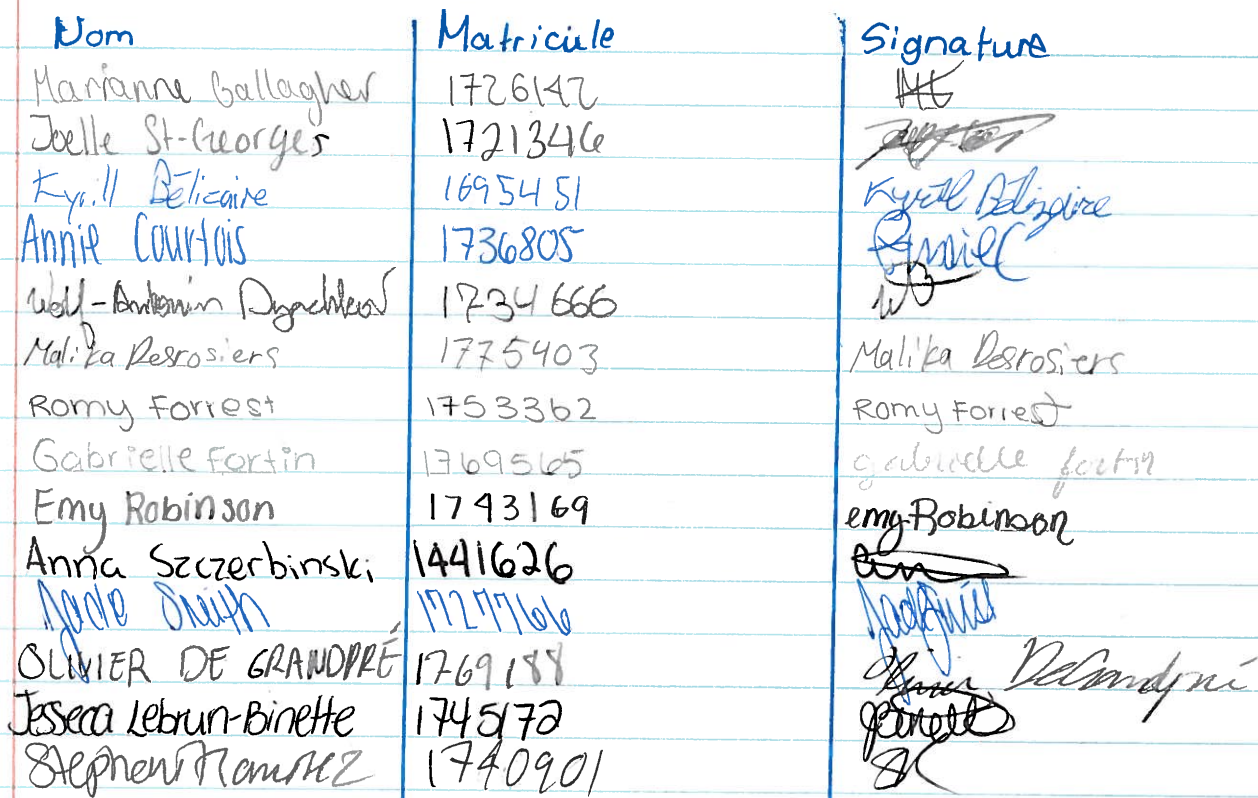 Nom Matricule Signature
Marianne Gallagher 1726142
Joelle St-Georges 1721346
Kyrill Bélizaire 1695451 Kyrill Bélizaire
Annie Courtois 1736805 AnnieC
Wolf-Antonin 1734666 WD
Malika Desrosiers 1775403 Malika Desrosiers
Romy Forrest 1753362 Romy Forrest
Gabrielle Fortin 1769565 gabrielle fortin
Emy Robinson 1743169 emy Robinson
Anna Szczerbinski 1441626
Jade Smith 1727766
OLIVIER DE GRANDPRÉ 1769188 Olivier DeGrandpré
Jesseca Lebrun-Binette 1745172
Stephen Ramirez 1740901 SR